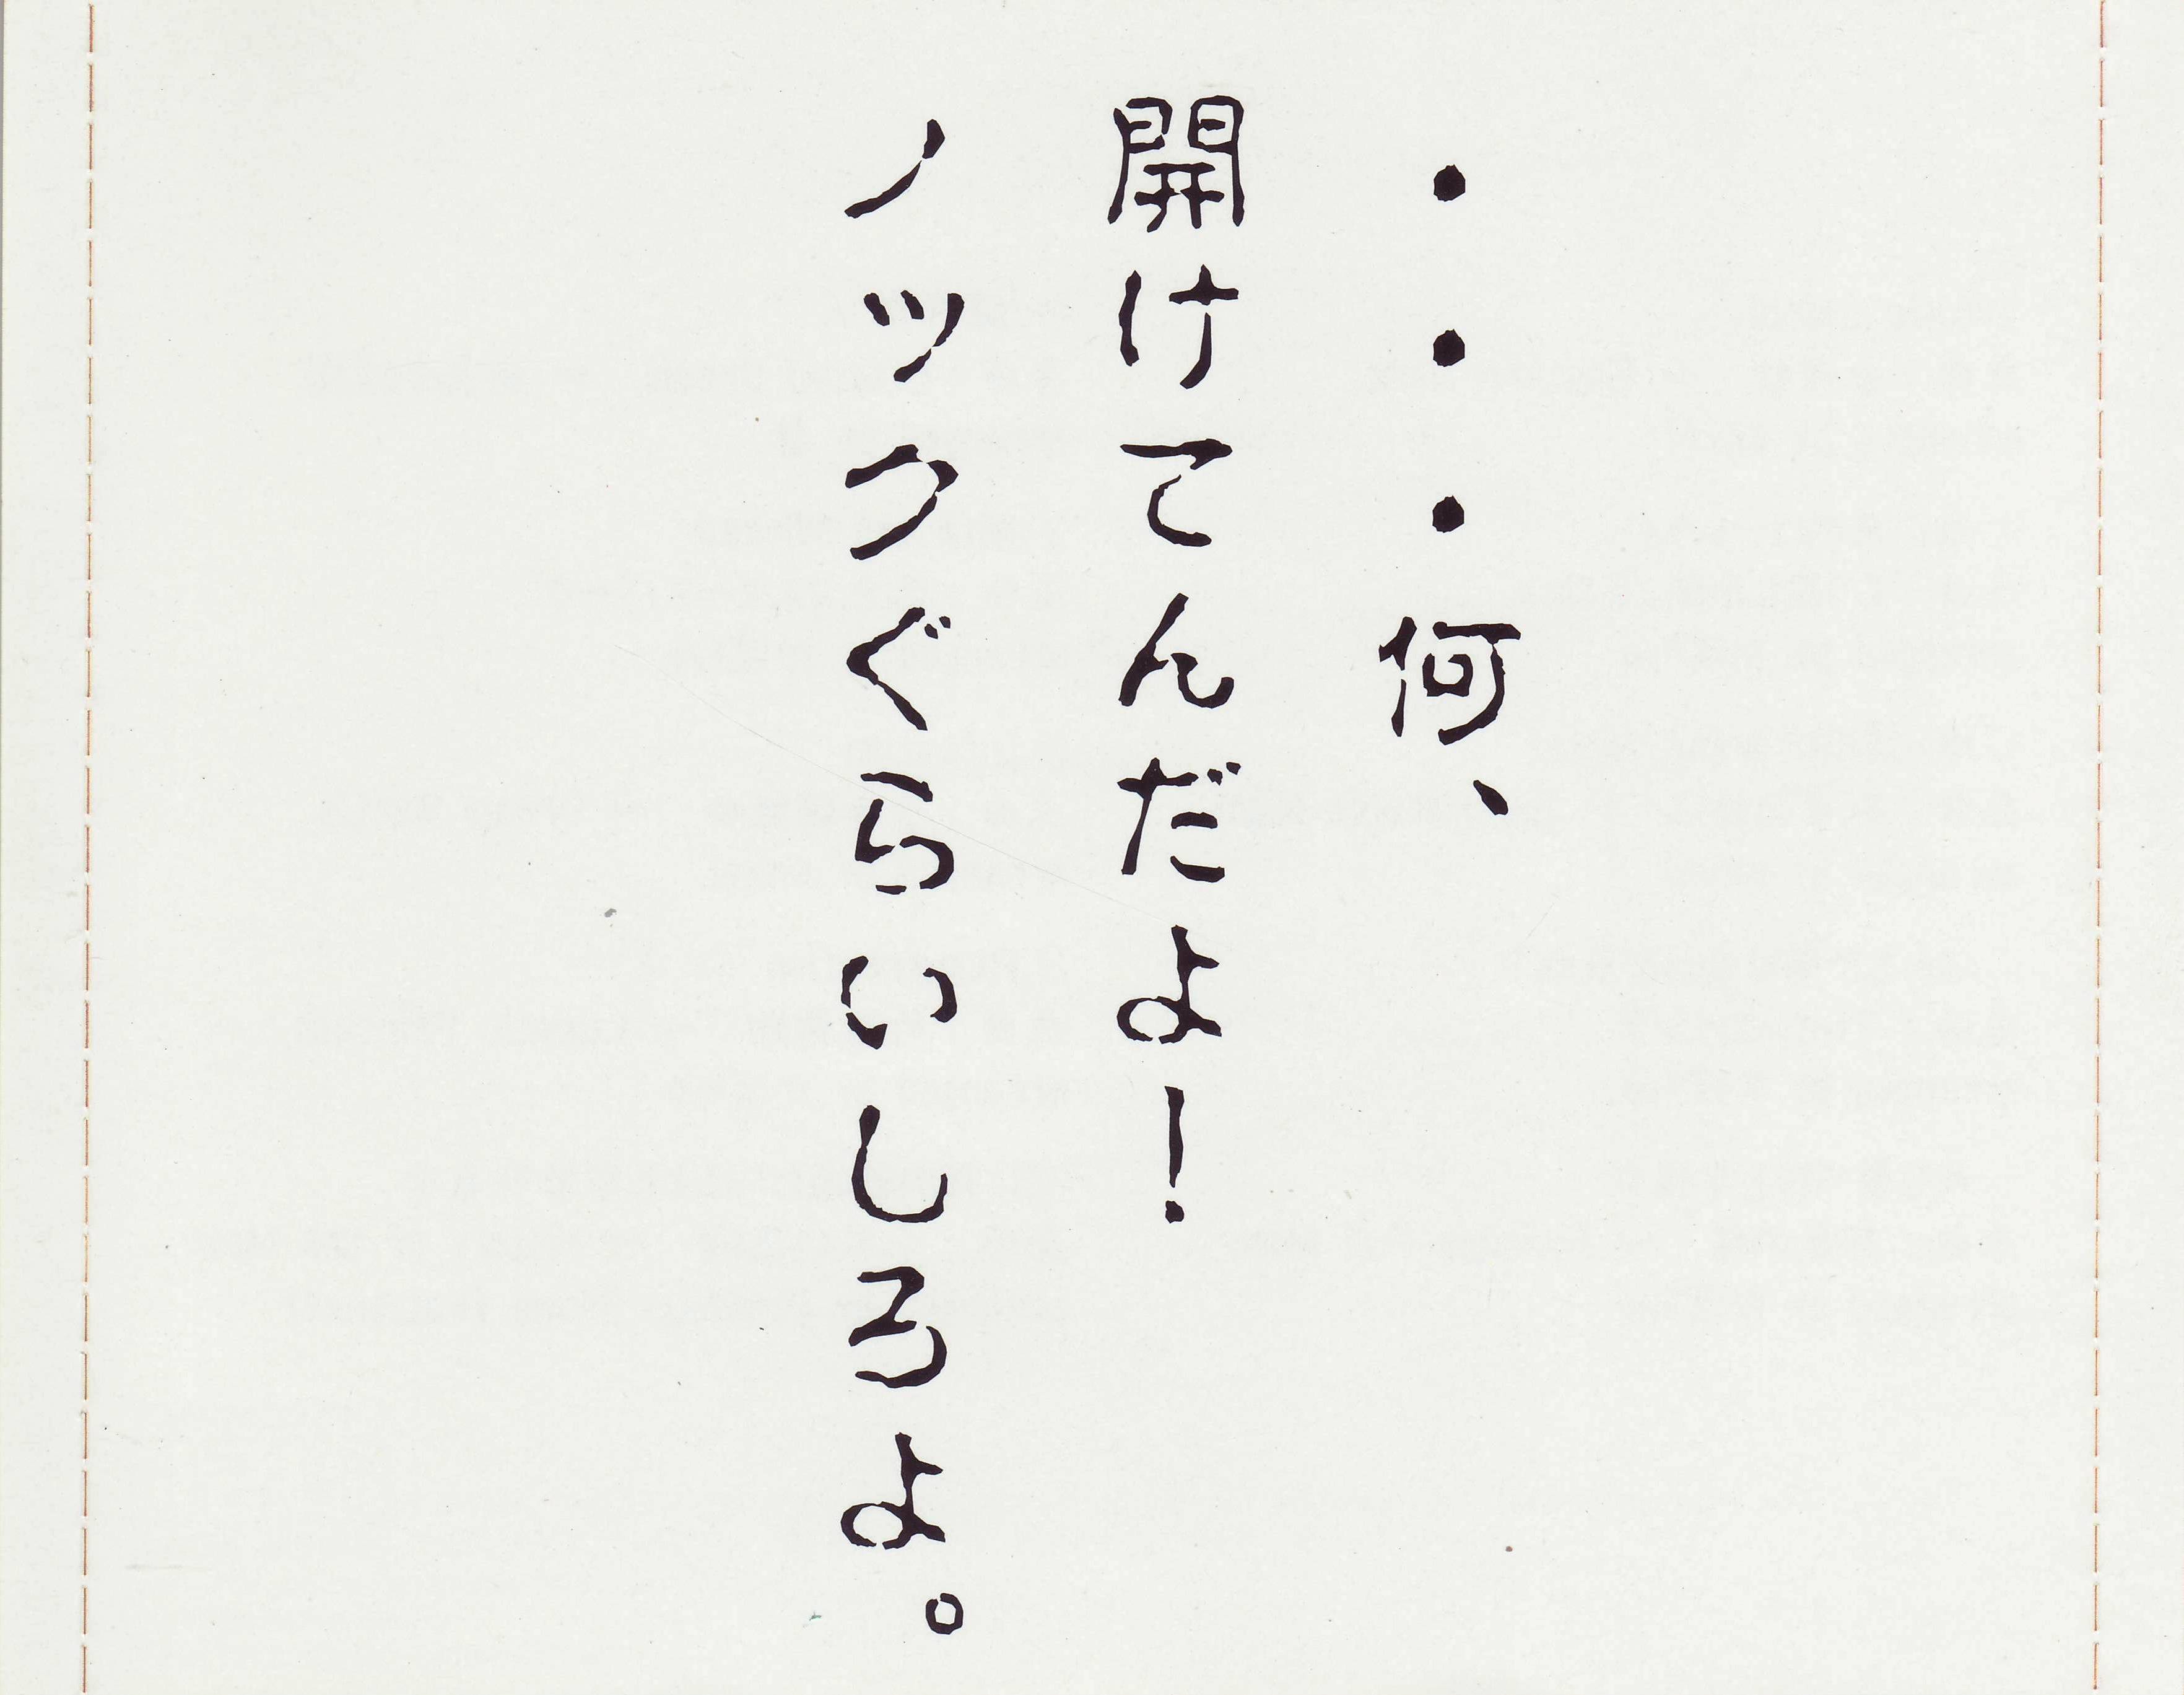 ・・・何、
開けてんだよ！
ノックぐらいしろよ。